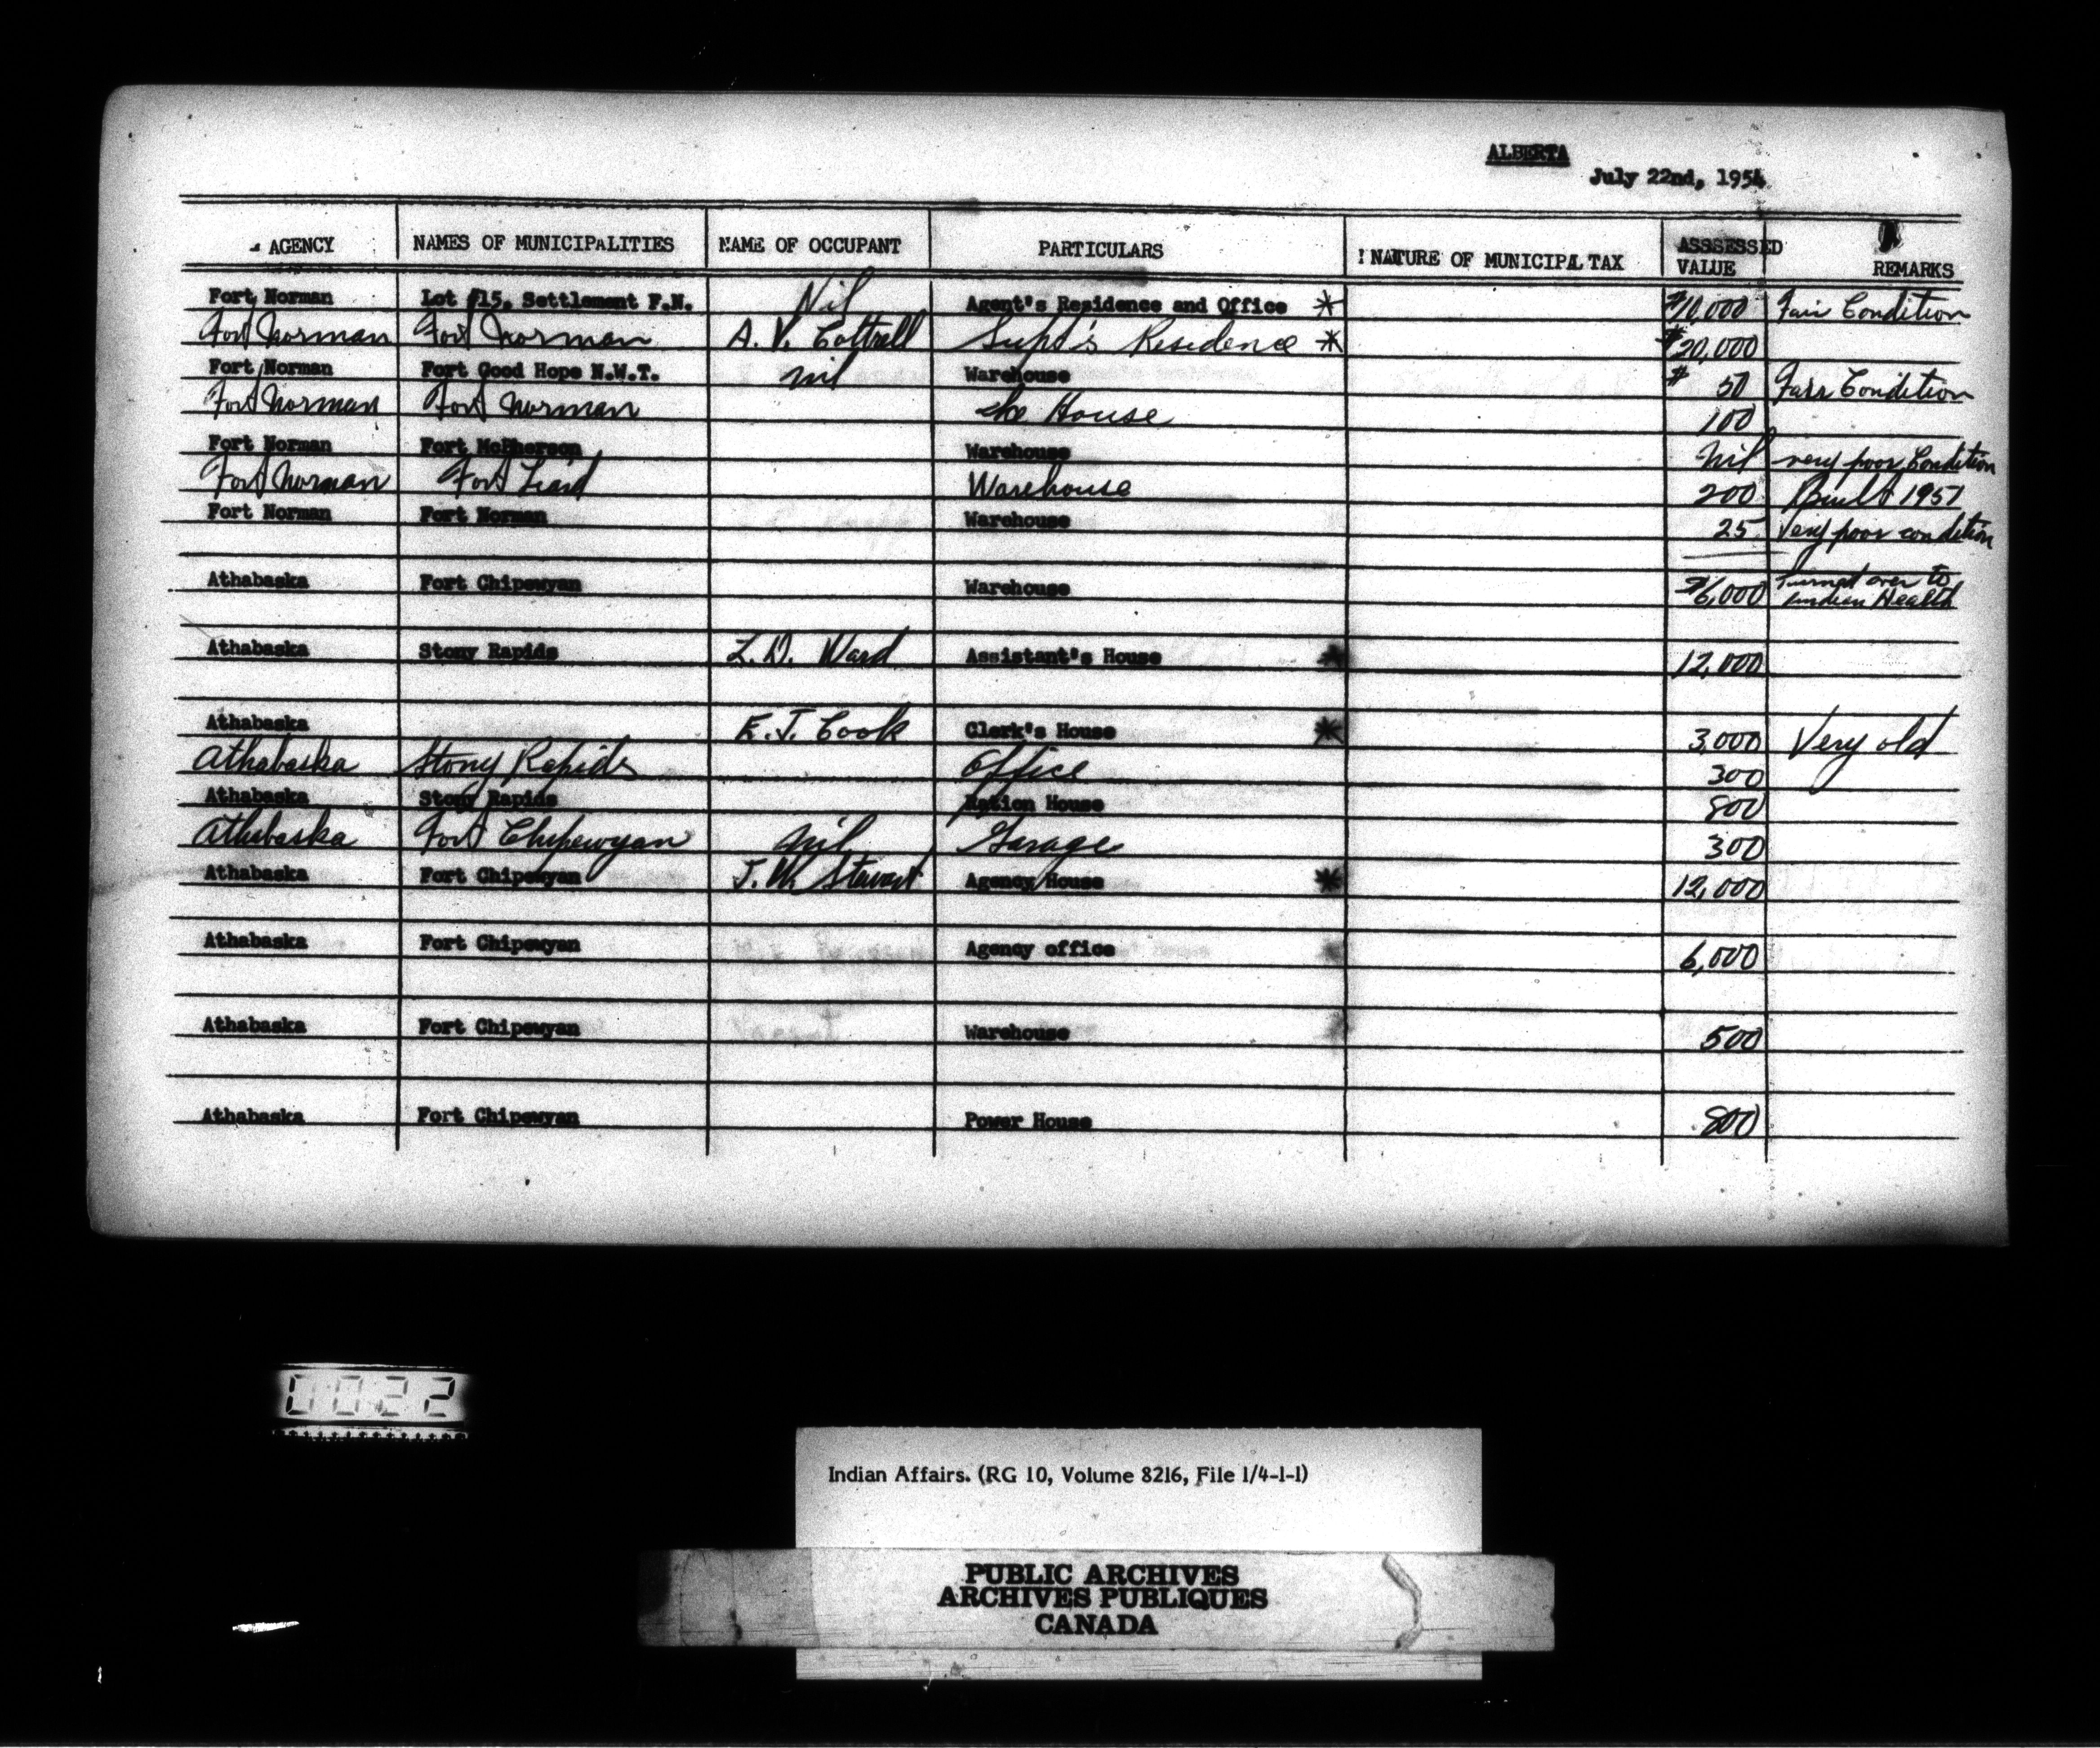 ALBERTA
July 22nd, 1954
AGENCY NAMES OF MUNICIPALITIES NAME OF OCCUPANT PARTICULARS NATURE OF MUNICIPAL TAX ASSSESSED VALUE REMARKS
Fort Norman Lot #15, Settlement F.N. Nil Agent's Residence and Office * $10,000 Fair Condition
Fort Norman Fort Norman A. V. Cottrell Supt's Residence * $20,000
Fort Norman Fort Good Hope N.W.T. nil Warehouse $ 50 Fair Condition
Fort Norman Fort Norman Ice House 100
Fort Norman Fort McPherson Warehouse Nil very poor Condition
Fort Norman Fort Liard Warehouse 200 Built 1951
Fort Norman Fort Norman Warehouse 25 Very poor condition
Athabaska Fort Chipewyan Warehouse $6,000 Turned over to Indian Health
Athabaska Stony Rapids L. D. Ward Assistant's House * 12,000
Athabaska E. J. Cook Clerk's House * 3,000 Very old
Athabaska Stony Rapids Office 300
Athabaska Stony Rapids Ration House 800
Athabaska Fort Chipewyan nil Garage 300
Athabaska Fort Chipewyan J. W. Stewart Agency House * 12,000
Athabaska Fort Chipewyan Agency office 6,000
Athabaska Fort Chipewyan Warehouse 500
Athabaska Fort Chipewyan Power House 800
0022
Indian Affairs. (RG 10, Volume 8216, File 1/4-1-1)
PUBLIC ARCHIVES
ARCHIVES PUBLIQUES
CANADA